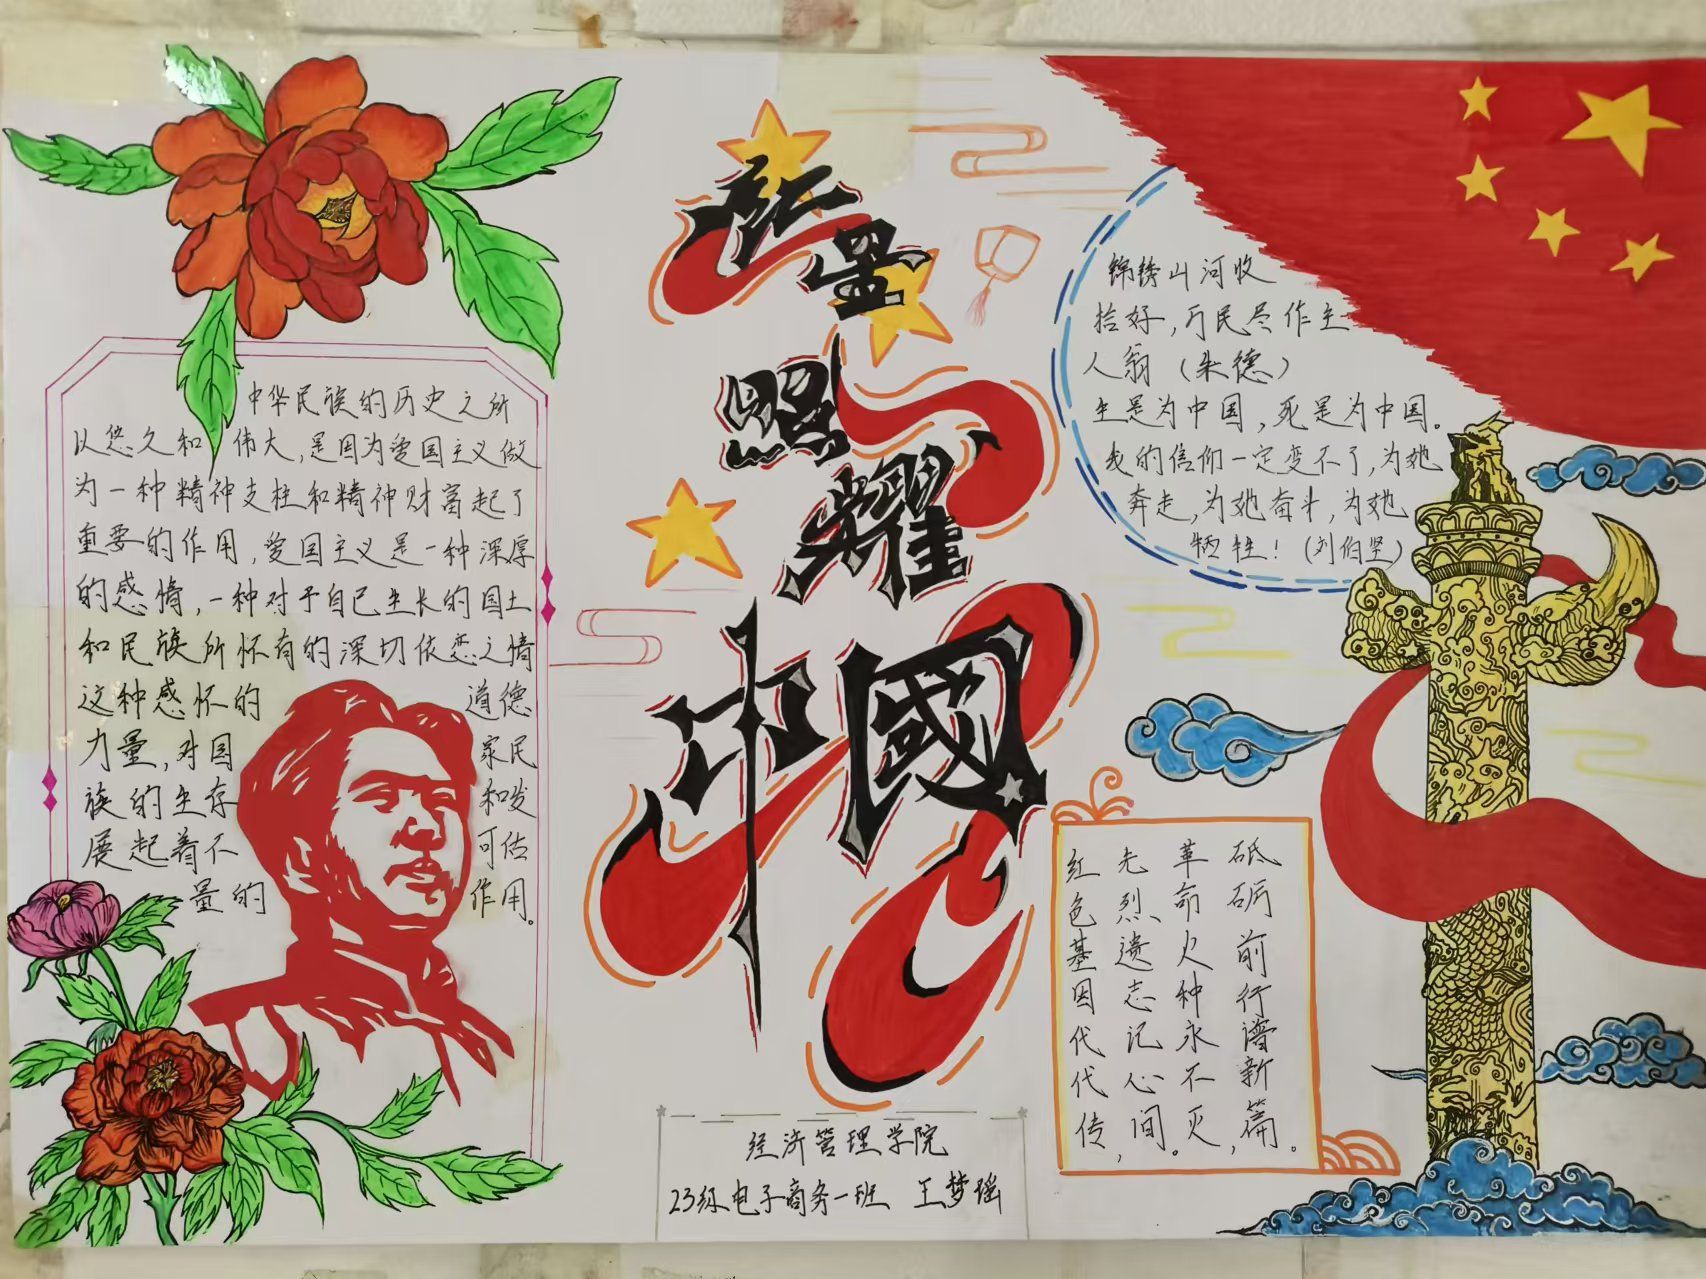 红星
照耀
中國
中华民族的历史之所
以悠久和伟大,是因为爱国主义做
为一种精神支柱和精神财富起了
重要的作用,爱国主义是一种深厚
的感情,一种对于自己生长的国土
和民族所怀有的深切依恋之情
这种感怀的道德
力量,对国家民
族的生存和发
展起着不可估
量的作用。
锦锈山河收
拾好,万民尽作主
人翁(朱德)
生是为中国,死是为中国。
我的信仰一定变不了,为她
奔走,为她奋斗,为她
牺牲!(刘伯坚)
红色基因代代传,
先烈遗志记心间。
革命火种永不灭,
砥砺前行谱新篇。
经济管理学院
23级电子商务一班 王梦瑶